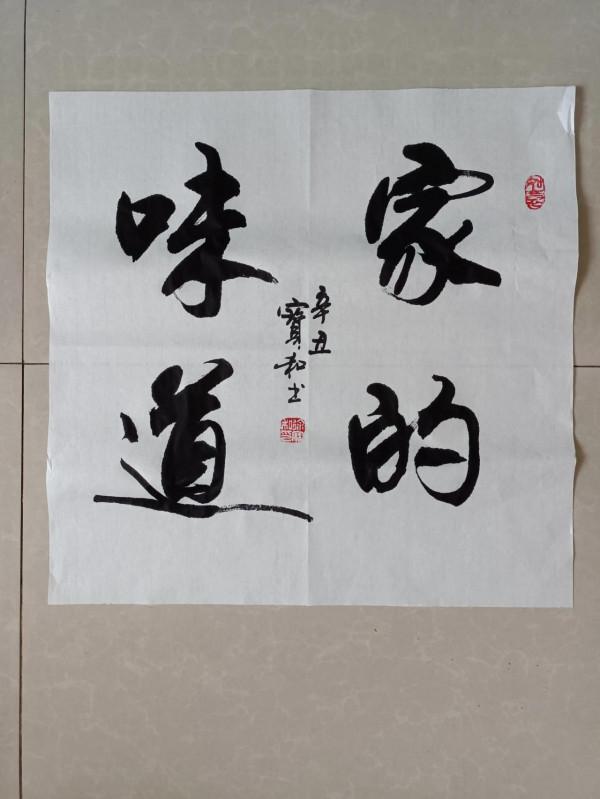 家的
味道
辛丑
寳和书